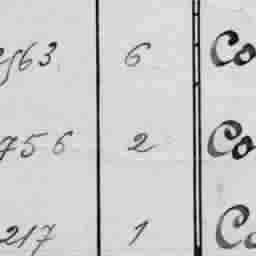 563 6 Co
756 2 Co
217 1 Co